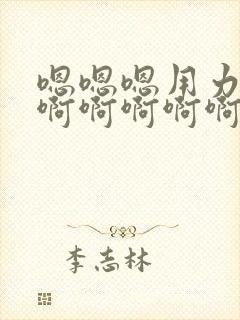 嗯嗯嗯用力
啊啊啊啊啊
李志林